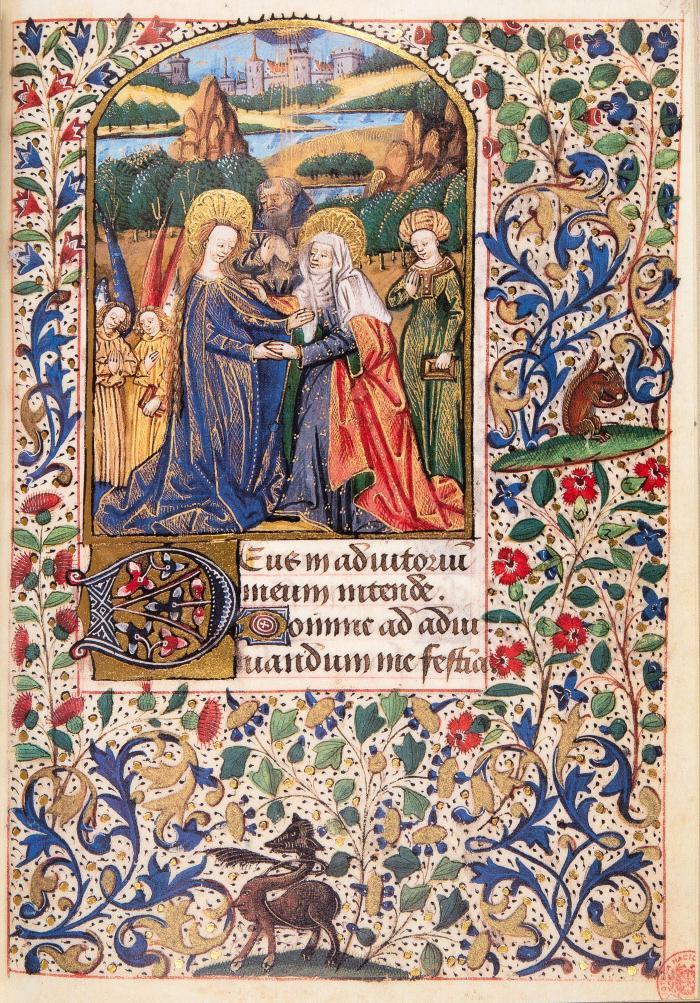 Deus in adiutoriū
meum intende.
Domine ad adiu
uandum me festīa